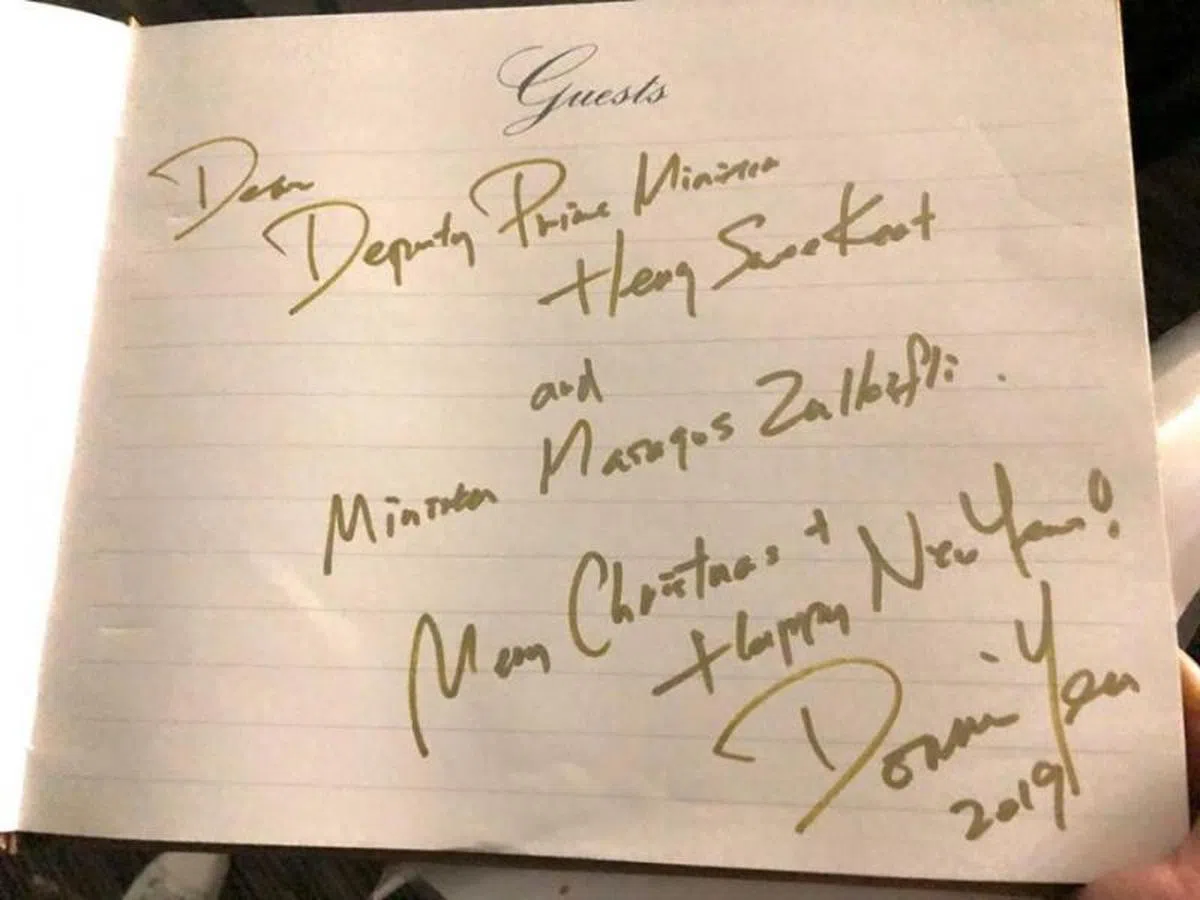 Guests
Dear
Deputy Prime Minister
Heng Swee Keat
and
Minister Masagos Zulkifli.
Merry Christmas +
Happy New Year!
Donnie Yen
2019